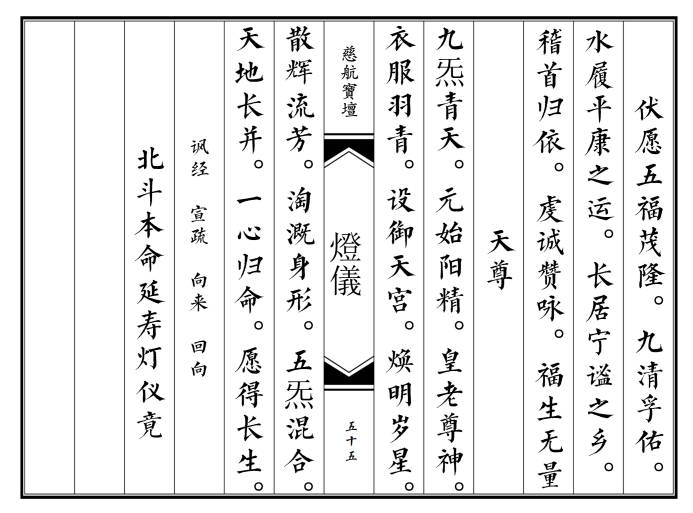 伏愿五福茂隆。九清孚佑。
水履平康之运。长居宁谧之乡。
稽首归依。虔诚赞咏。福生无量
天尊
九炁青天。元始阳精。皇老尊神。
衣服羽青。设御天宫。焕明岁星。
慈航寶壇
燈儀
五十五
散辉流芳。淘溉身形。五炁混合。
天地长并。一心归命。愿得长生。
讽经 宣疏 向来 回向
北斗本命延寿灯仪竟